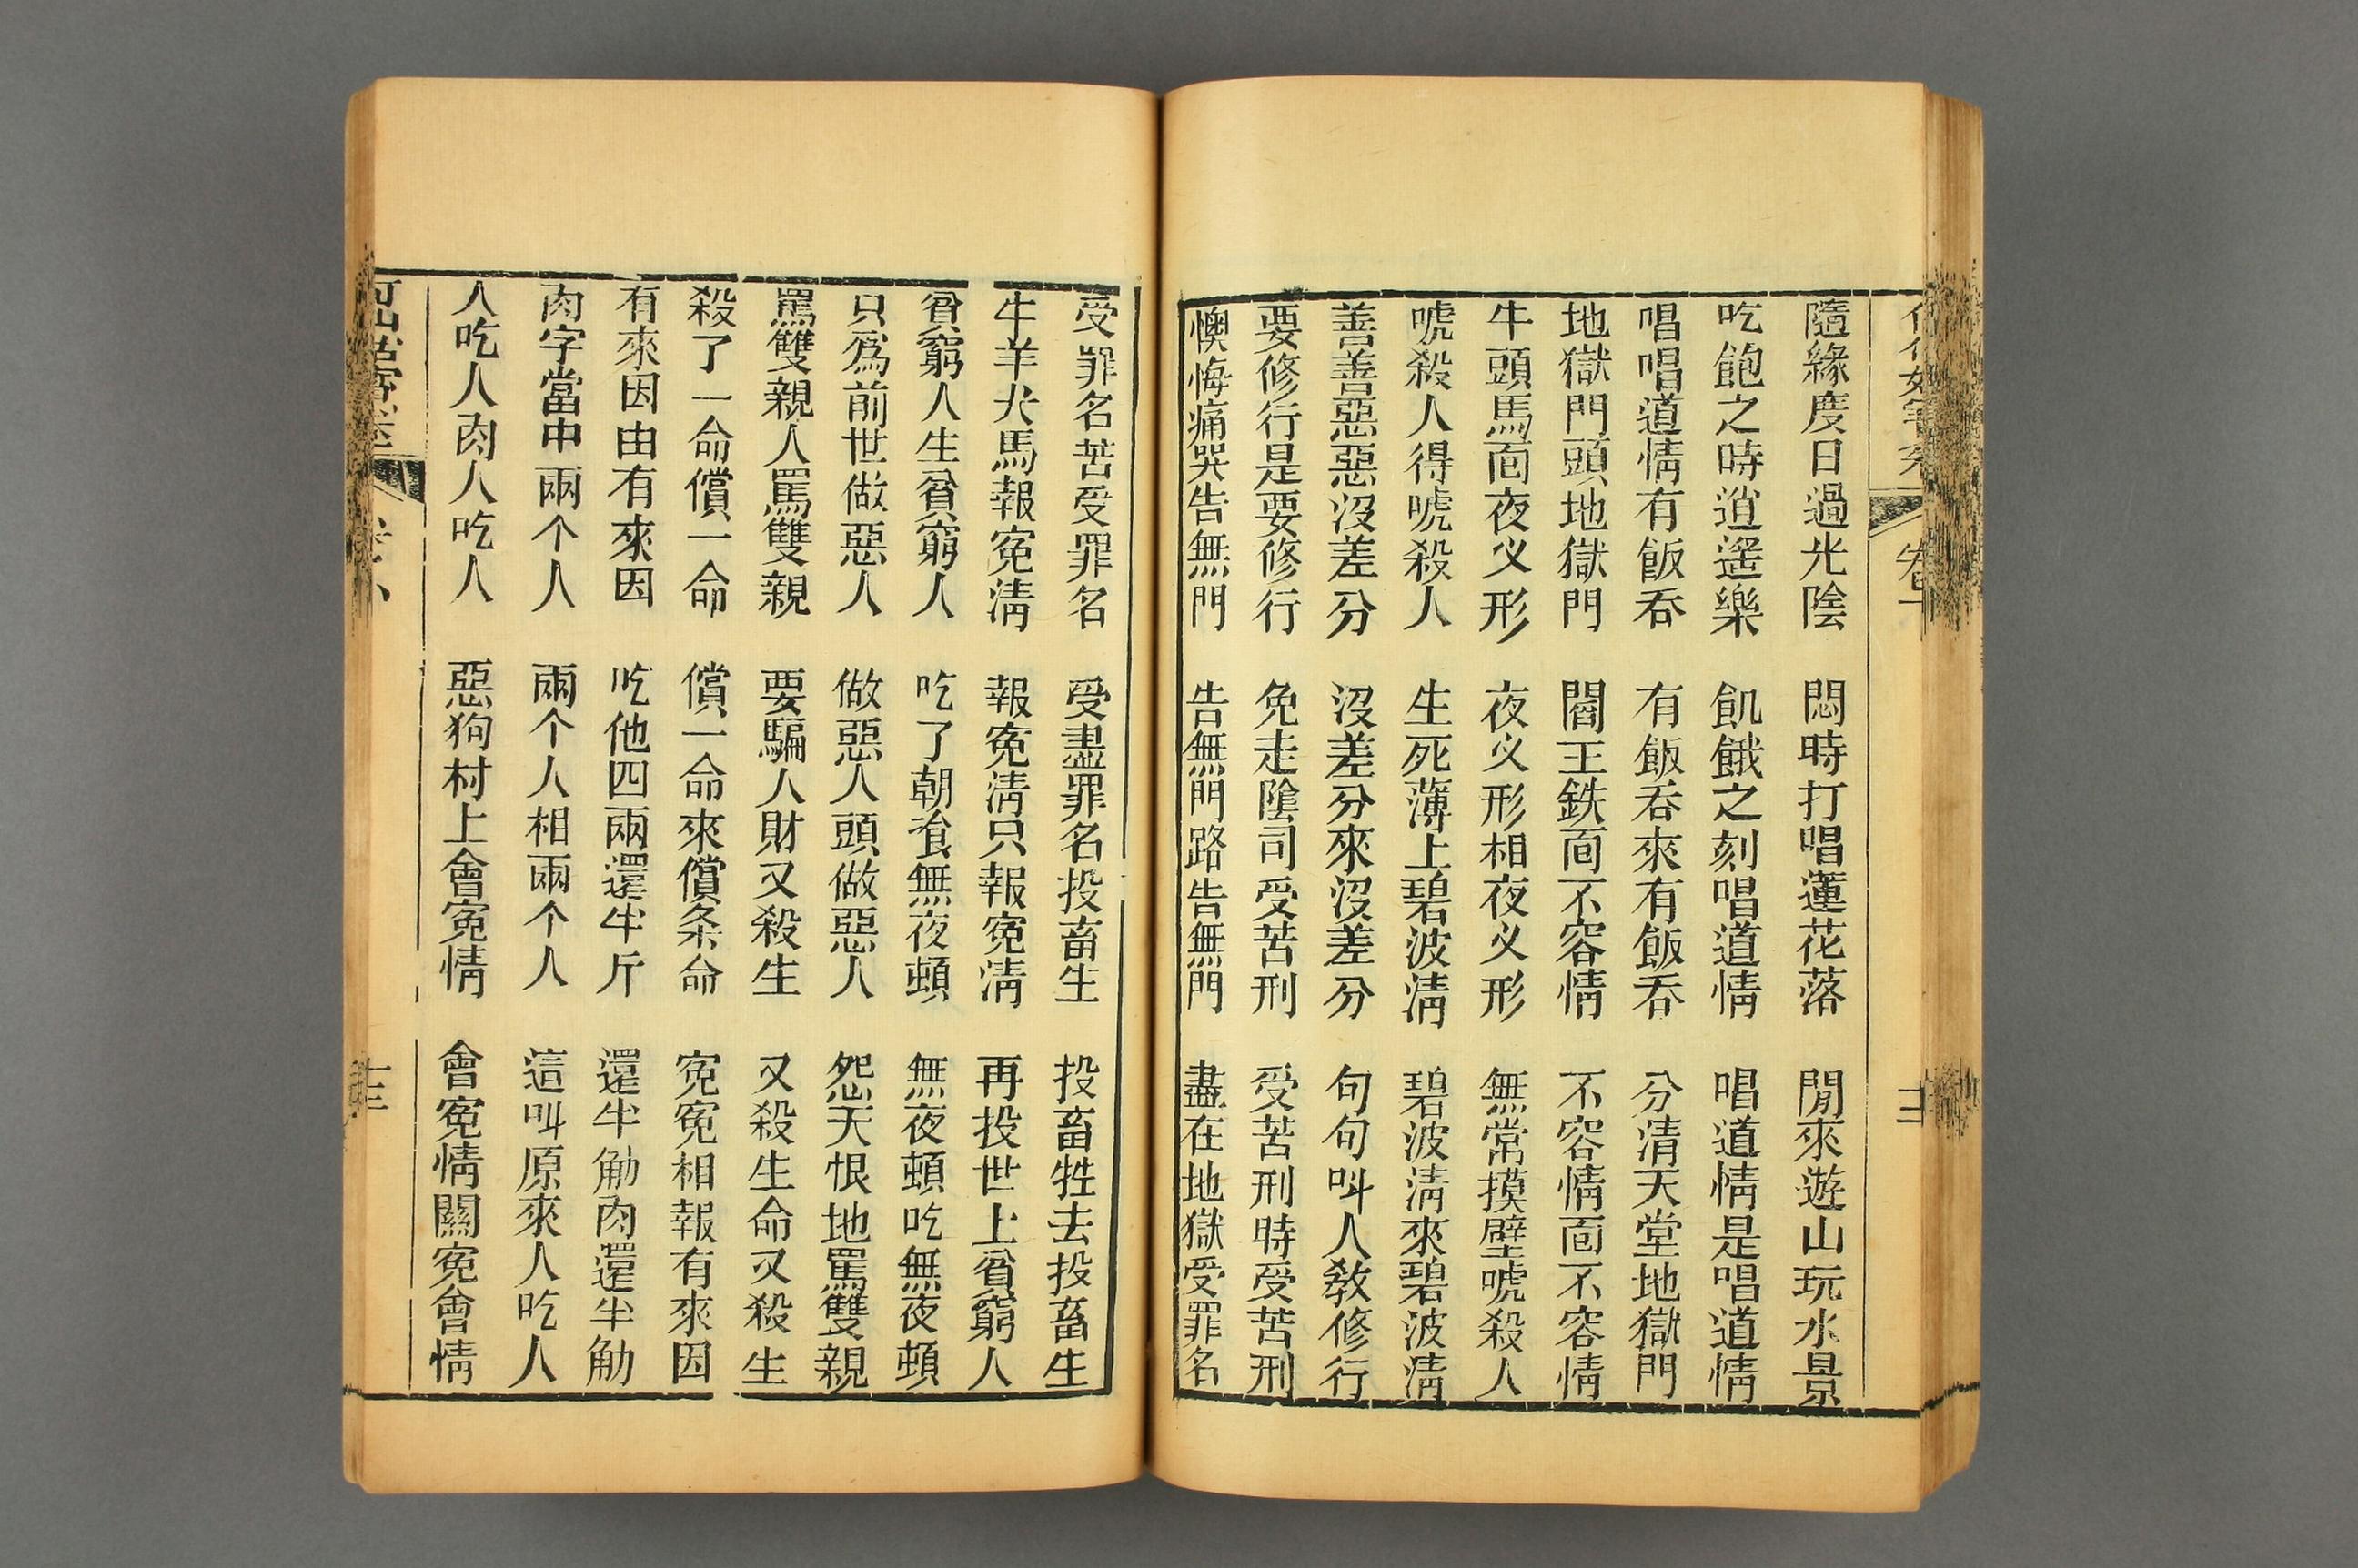 隨緣度日過光陰　悶時打唱蓮花落　閒來遊山玩水景
吃飽之時逍遙樂　飢餓之刻唱道情　唱道情是唱道情
唱唱道情有飯吞　有飯吞來有飯吞　分清天堂地獄門
地獄門頭地獄門　閻王鉄面不容情　不容情面不容情
牛頭馬面夜义形　夜义形相夜义形　無常摸壁唬殺人
唬殺人得唬殺人　生死薄上碧波清　碧波清來碧波清
善善惡惡沒差分　沒差分來沒差分　句句叫人教修行
要修行是要修行　免走陰司受苦刑　受苦刑時受苦刑
懊悔痛哭告無門　告無門路告無門　盡在地獄受罪名
受罪名苦受罪名　受盡罪名投畜生　投畜牲去投畜生
牛羊犬馬報寃清　報寃清只報寃清　再投世上貧窮人
貧窮人生貧窮人　吃了朝飡無夜頓　無夜頓吃無夜頓
只爲前世做惡人　做惡人頭做惡人　怨天恨地罵雙親
罵雙親人罵雙親　要騙人財又殺生　又殺生命又殺生
殺了一命償一命　償一命來償条命　寃寃相報有來因
有來因由有來因　吃他四兩還半斤　還半觔肉還半觔
肉字當中兩个人　兩个人相兩个人　這叫原來人吃人
人吃人肉人吃人　惡狗村上會寃情　會寃情關寃會情